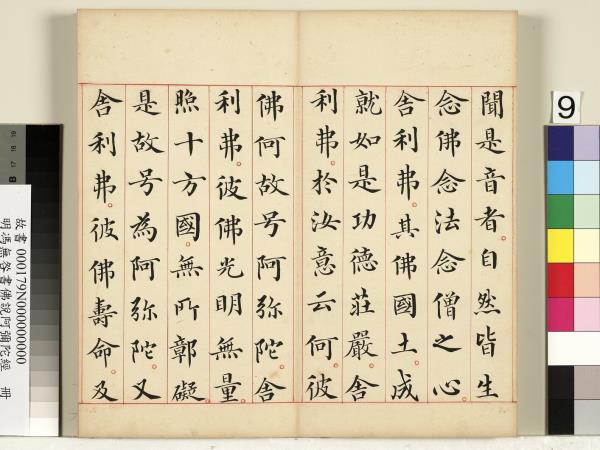 聞是音者。自然皆生
念佛念法念僧之心。
舍利弗。其佛國土。成
就如是功德莊嚴。舍
利弗。於汝意云何。彼
佛何故号阿弥陀。舍
利弗。彼佛光明無量。
照十方國。無所鄣礙。
是故号為阿弥陀。又
舍利弗。彼佛壽命。及
9
故書 000179N000000000
明馮無咎書佛說阿彌陀經 冊
B